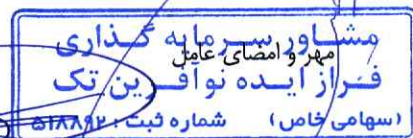 مشاور سرمایه گذاری
مهر و امضای عامل
فراز ایده نوآفرین تک
(سهامی خاص) شماره ثبت: ۵۱۸۸۹۲